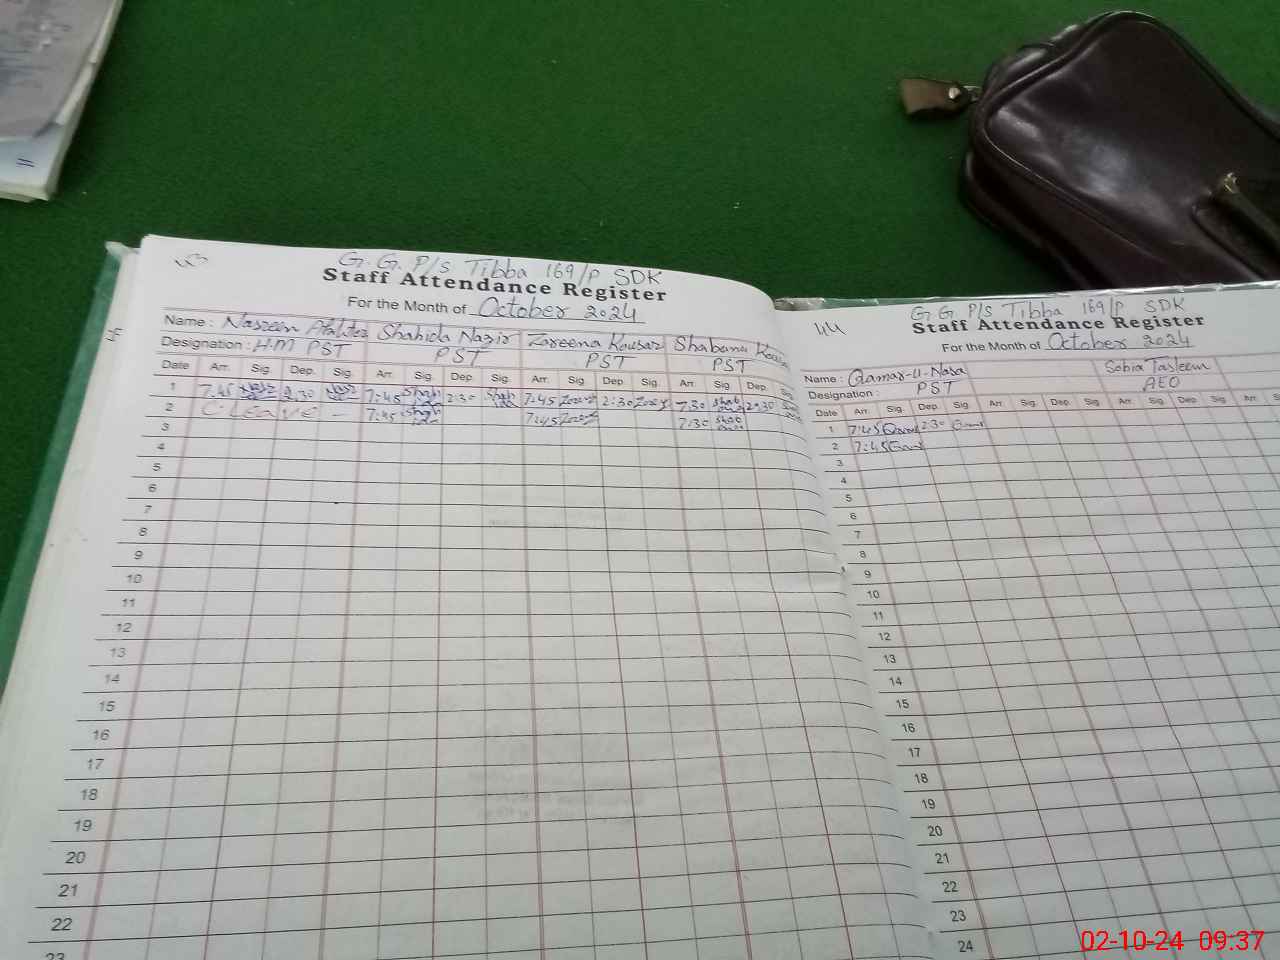 G.G. P/s Tibba 169/P SDK
Staff Attendance Register
For the Month of October 2024
Name : Nasreen Akhter Shahida Nazir Zareena Kousar Shabana Kousar
Designation : H.M PST PST PST PST
Date Arr. Sig. Dep. Sig. Arr. Sig. Dep. Sig. Arr. Sig. Dep. Sig. Arr. Sig. Dep. Sig.
1 7.45 2.30 7:45 2:30 7:45 2:30 7.30 2:30
2 C.Leave – 7:45 7:45 7:30
3
4
5
6
7
8
9
10
11
12
13
14
15
16
17
18
19
20
21
22
23
44
G.G P/s Tibba 169/P SDK
Staff Attendance Register
For the Month of October 2024
Name : Qamar-U-Nasa Sobia Tasleem
Designation : PST AEO
Date Arr. Sig. Dep. Sig. Arr. Sig. Dep. Sig. Arr. Sig. Dep. Sig. Arr. S
1 7:45 2:30
2 7:45
3
4
5
6
7
8
9
10
11
12
13
14
15
16
17
18
19
20
21
22
23
24
02-10-24 09:37